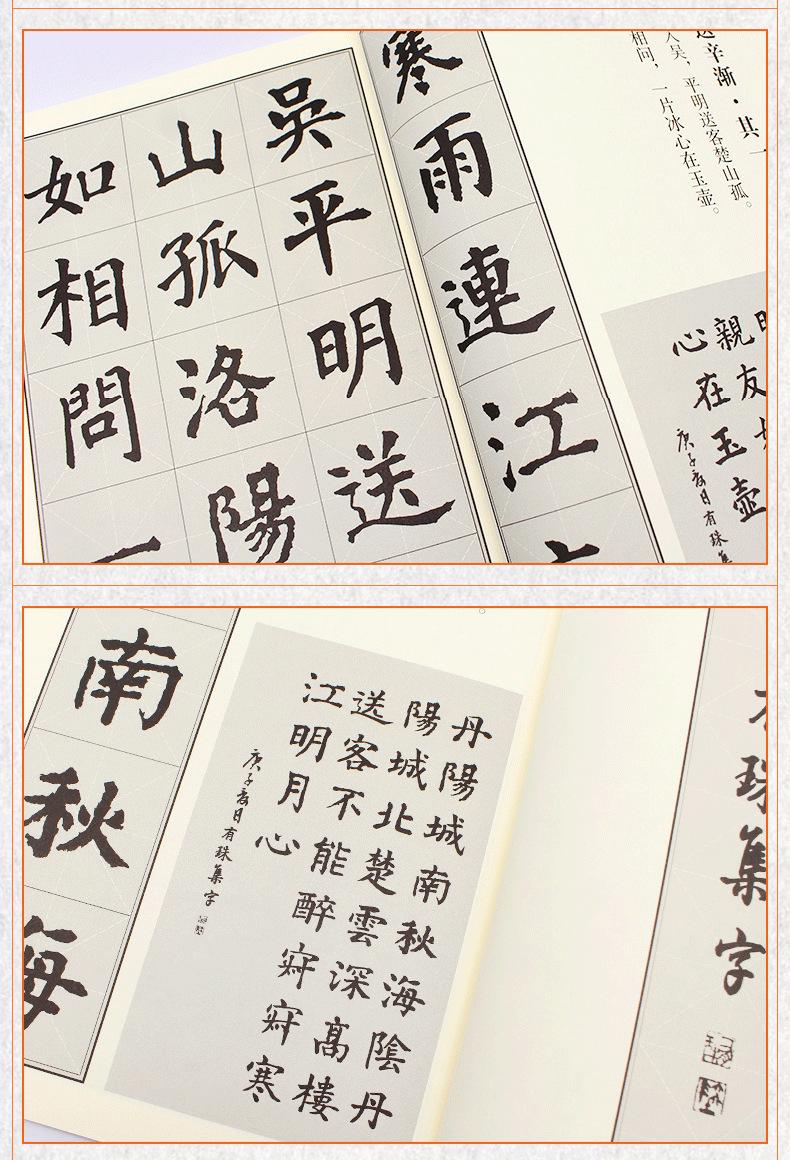 辛渐·其一
入吴，平明送客楚山孤。
相问，一片冰心在玉壶。
親友如
心在玉壺
庚子春月有珠集
寒雨連江
吳平明送
山孤洛陽
如相問一
珠集字
丹陽城南秋海陰丹
陽城北楚雲深高樓
送客不能醉寂寂寒
江明月心
庚子春月有珠集字
南秋海